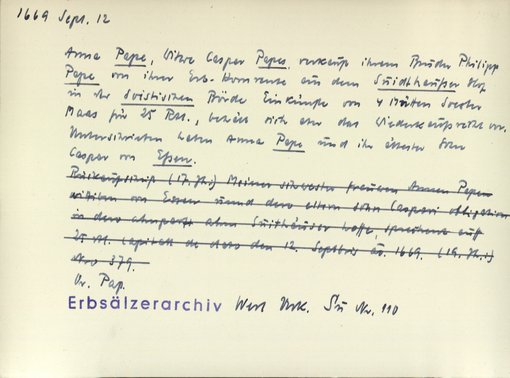 1669 Sept. 12
Anna Pape, Witwe Caspar Papes, verkauft ihrem Bruder Philipp
Pape von ihrer Erb-Kornrente aus dem Suidthaußer Hof
in der Soistischen Börde Einkünfte von 4 Mütten Soester
Maas für 25 Rtl., behält sich aber das Wiederkaufsrecht vor.
Unterschrieben haben Anna Pape und ihr ältester Sohn
Caspar von Essen.
(17. Jh.) Meiner schwester frauen Annen Papen
wittiben von Essen unnd dero eltern sohn Caspari obligation
in dero alten hoffe, sprechend auff
25 rtl. capitall de dato den 12. Septbris ao. 1669. (19. Jh.:)
Nro 379.
Or. Pap.
Erbsälzerarchiv Werl Urk. Nr. 110